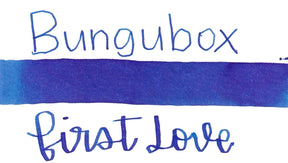 Bungubox
First Love